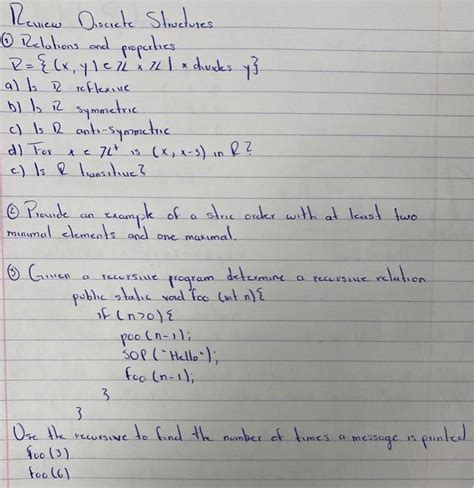 Review Discrete Structures
① Relations and properties
R = { (x, y) ∈ ℤ × ℤ | x divides y}
a) Is R reflexive
b) Is R symmetric
c) Is R anti-symmetric
d) For x ∈ ℤ⁺ is (x, x-5) in R?
e) Is R transitive?
② Provide an example of a stric order with at least two
minimal elements and one maximal.
③ Given a recursive program determine a recursive relation
public static void foo (int n){
if (n>0) {
poo (n-1);
SOP ("Hello");
foo (n-1);
}
}
Use the recursive to find the number of times a message is printed
foo (3)
foo (6)